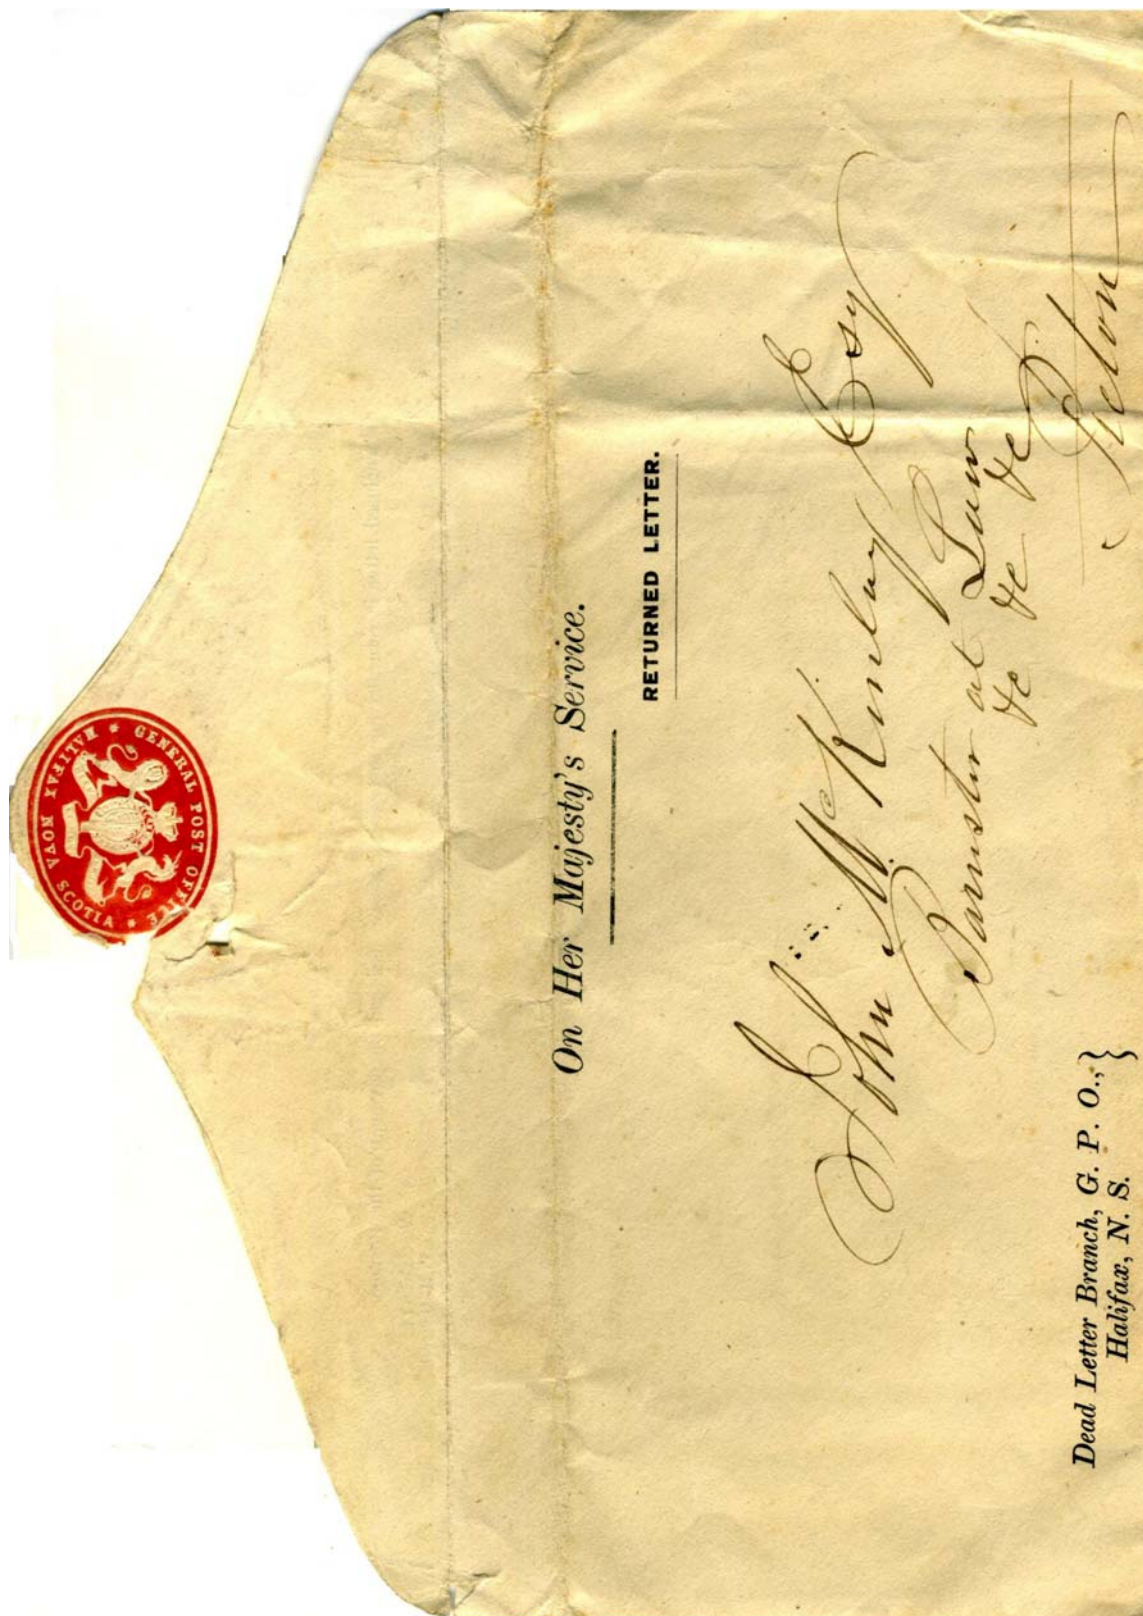 GENERAL POST OFFICE * HALIFAX NOVA SCOTIA *
On Her Majesty's Service.
RETURNED LETTER.
John McKinlay Esq
Barrister at Law
&c &c &c
Picton
Dead Letter Branch, G. P. O.,}
Halifax, N. S.